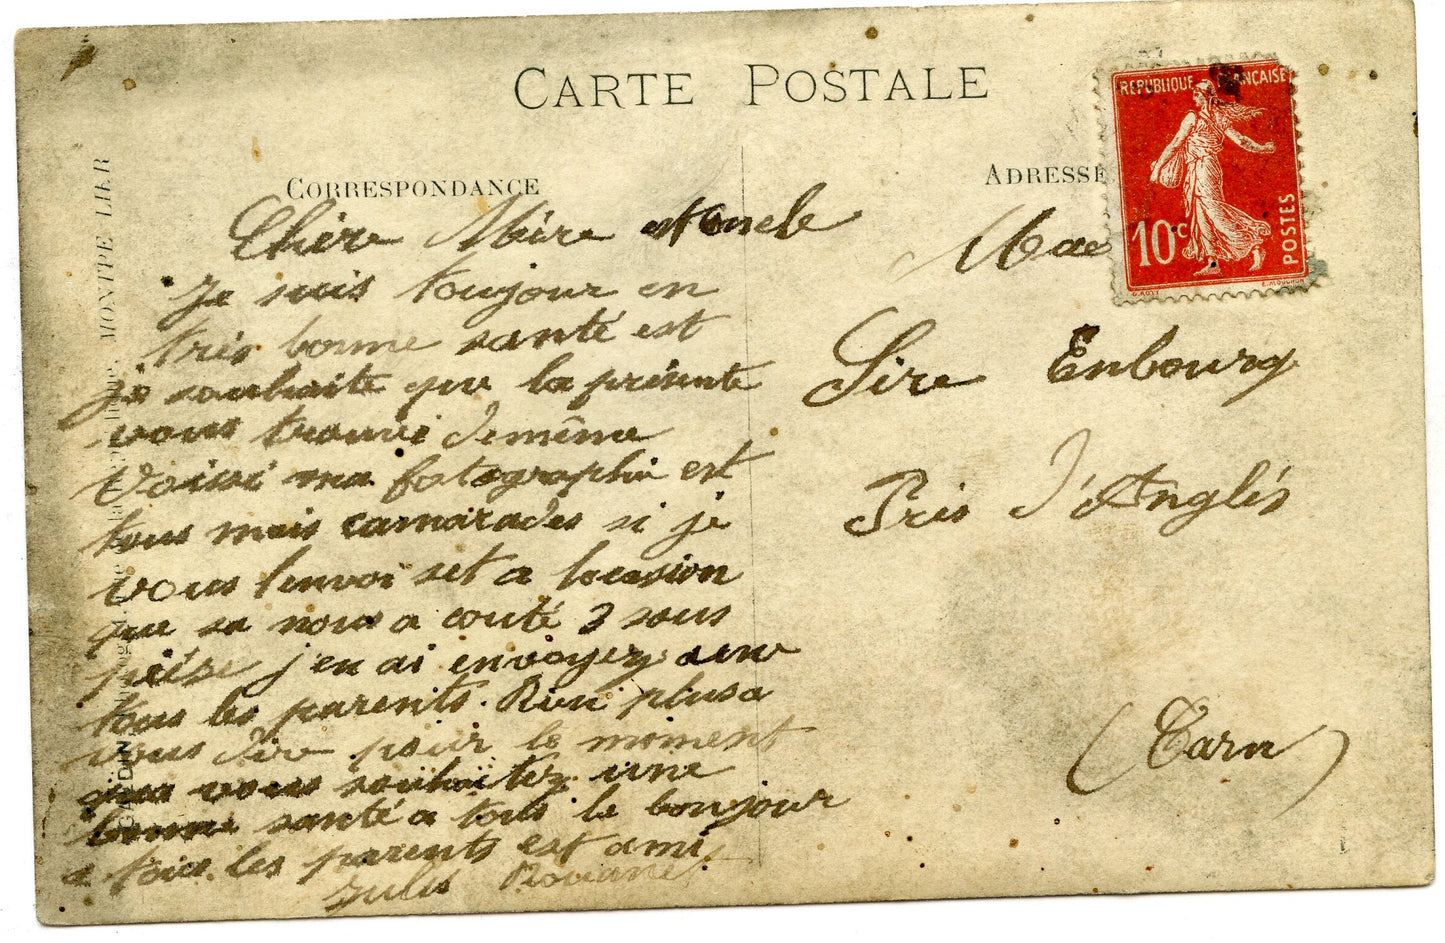 CARTE POSTALE
CORRESPONDANCE
ADRESSE
RÉPUBLIQUE FRANÇAISE
10c
POSTES
Chère Mère et Oncle
Je suis toujour en
très bonne santé est
je souhaite que la présente
vous trouve de même
Voissi ma fotographie est
tous mais camarades si je
vous l'envoi set a locasion
que sa nous a couté 3 sous
pièse j'en ai envoyez
tous les parents. Rien plus a
vous dire pour le moment
que vous souhaitez une
bonne santé a tous le bonjour
a tous les parents est ami
Jules Rouanet
Sire Enbourg
Pris d'Anglés
(Tarn)
MONTPELLIER